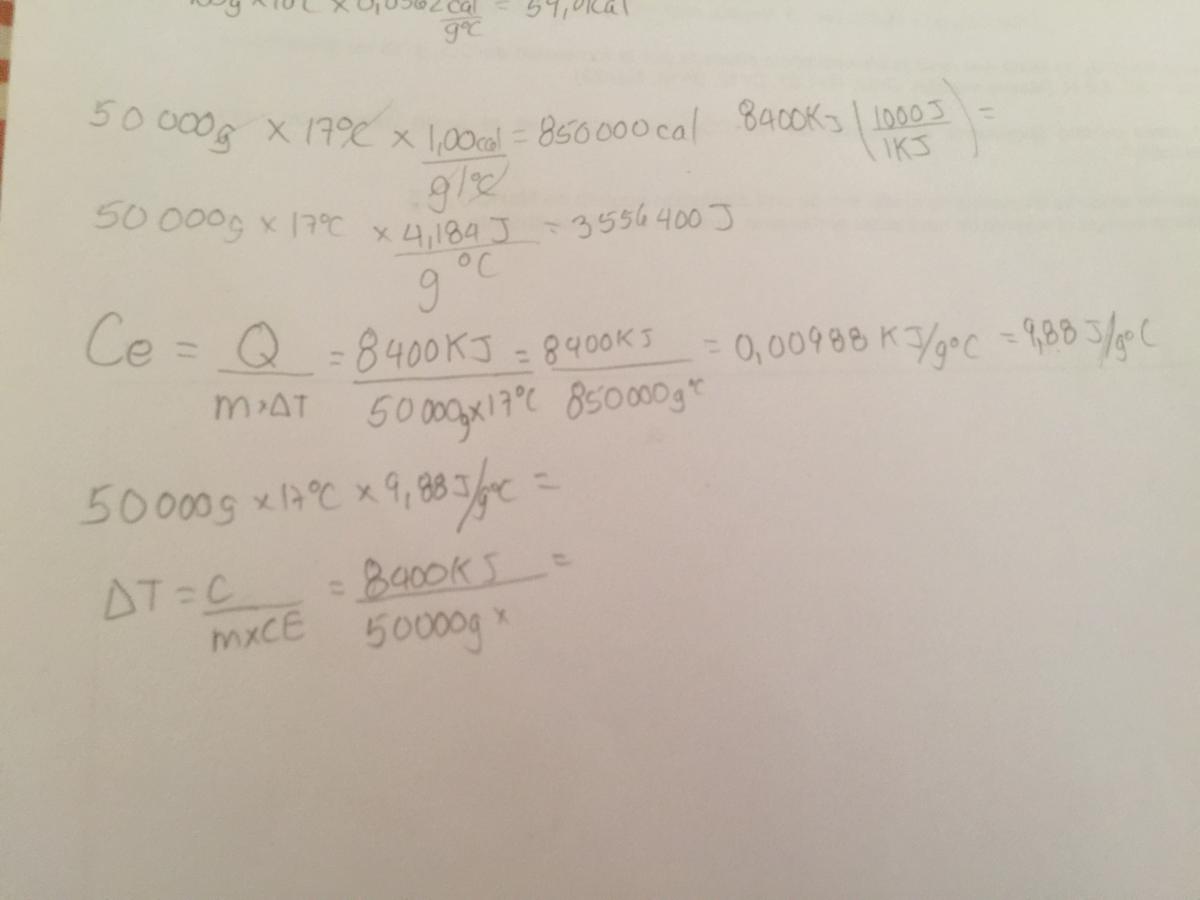 g x 10°C x 0,0562 cal/g°C = 54,0 Kal
50 000g x 17°C x 1,00cal/g1°C = 850000 cal 8400KJ (1000J/1KJ) =
50000g x 17°C x 4,184J/g°C = 3556400J
Ce = Q/m.ΔT = 8400KJ/50000gx17°C = 8400KJ/850000g°C = 0,00988 KJ/g°C = 9,88 J/g°C
50000g x 17°C x 9,88J/g°C =
ΔT = C/mxCE = 8400KJ/50000g x =